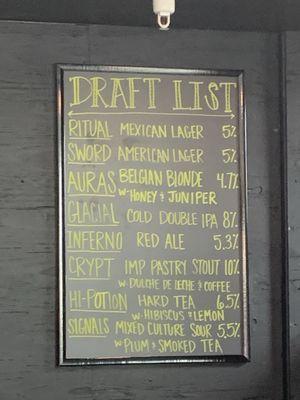 DRAFT LIST
RITUAL MEXICAN LAGER 5%
SWORD AMERICAN LAGER 5%
AURAS BELGIAN BLONDE 4.7%
W- HONEY & JUNIPER
GLACIAL COLD DOUBLE IPA 8%
INFERNO RED ALE 5.3%
CRYPT IMP PASTRY STOUT 10%
W- DULCHE DE LECHE & COFFEE
HI-POTION HARD TEA 6.5%
W- HIBISCUS & LEMON
SIGNALS MIXED CULTURE SOUR 5.5%
W- PLUM & SMOKED TEA